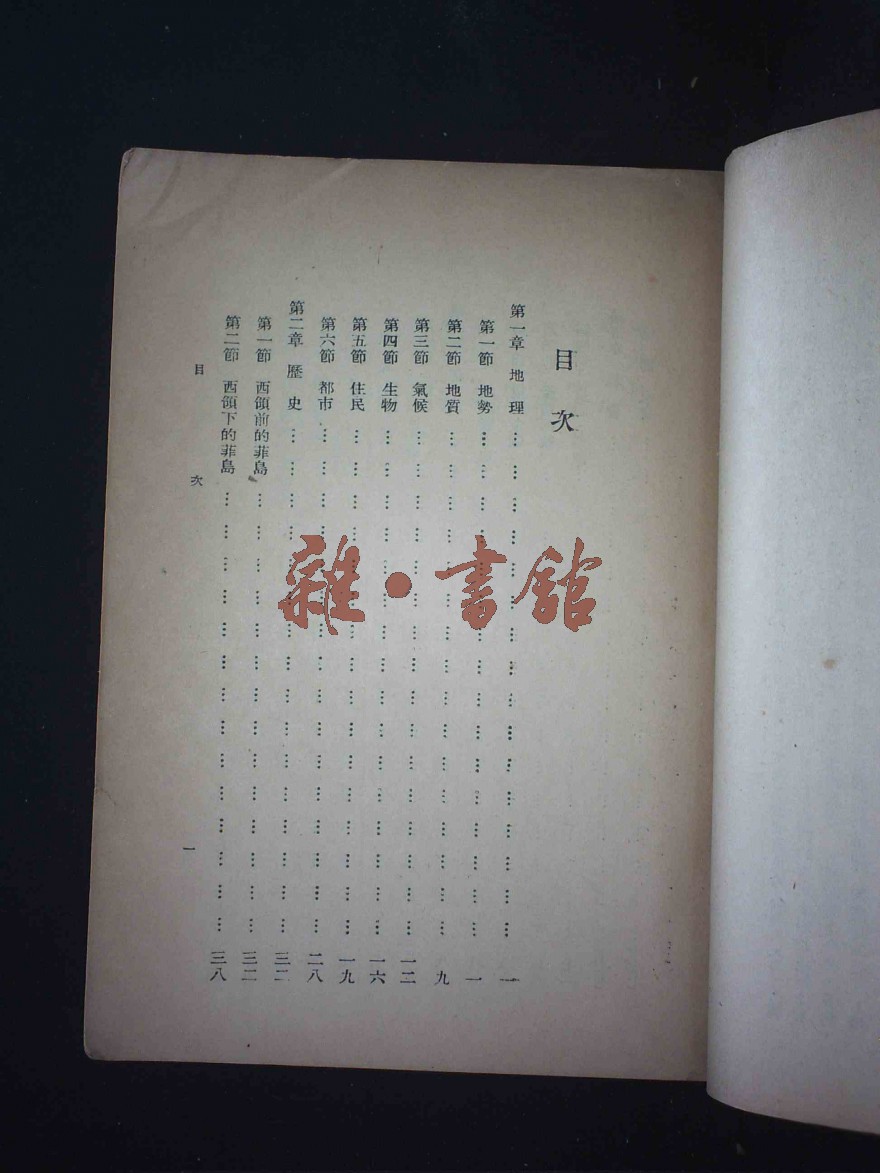 目次
第一章 地理……一
第一節 地勢……一
第二節 地質……九
第三節 氣候……一二
第四節 生物……一六
第五節 住民……一九
第六節 都市……二八
第二章 歷史……三二
第一節 西領前的菲島……三二
第二節 西領下的菲島……三八
目次
一
雜·書館